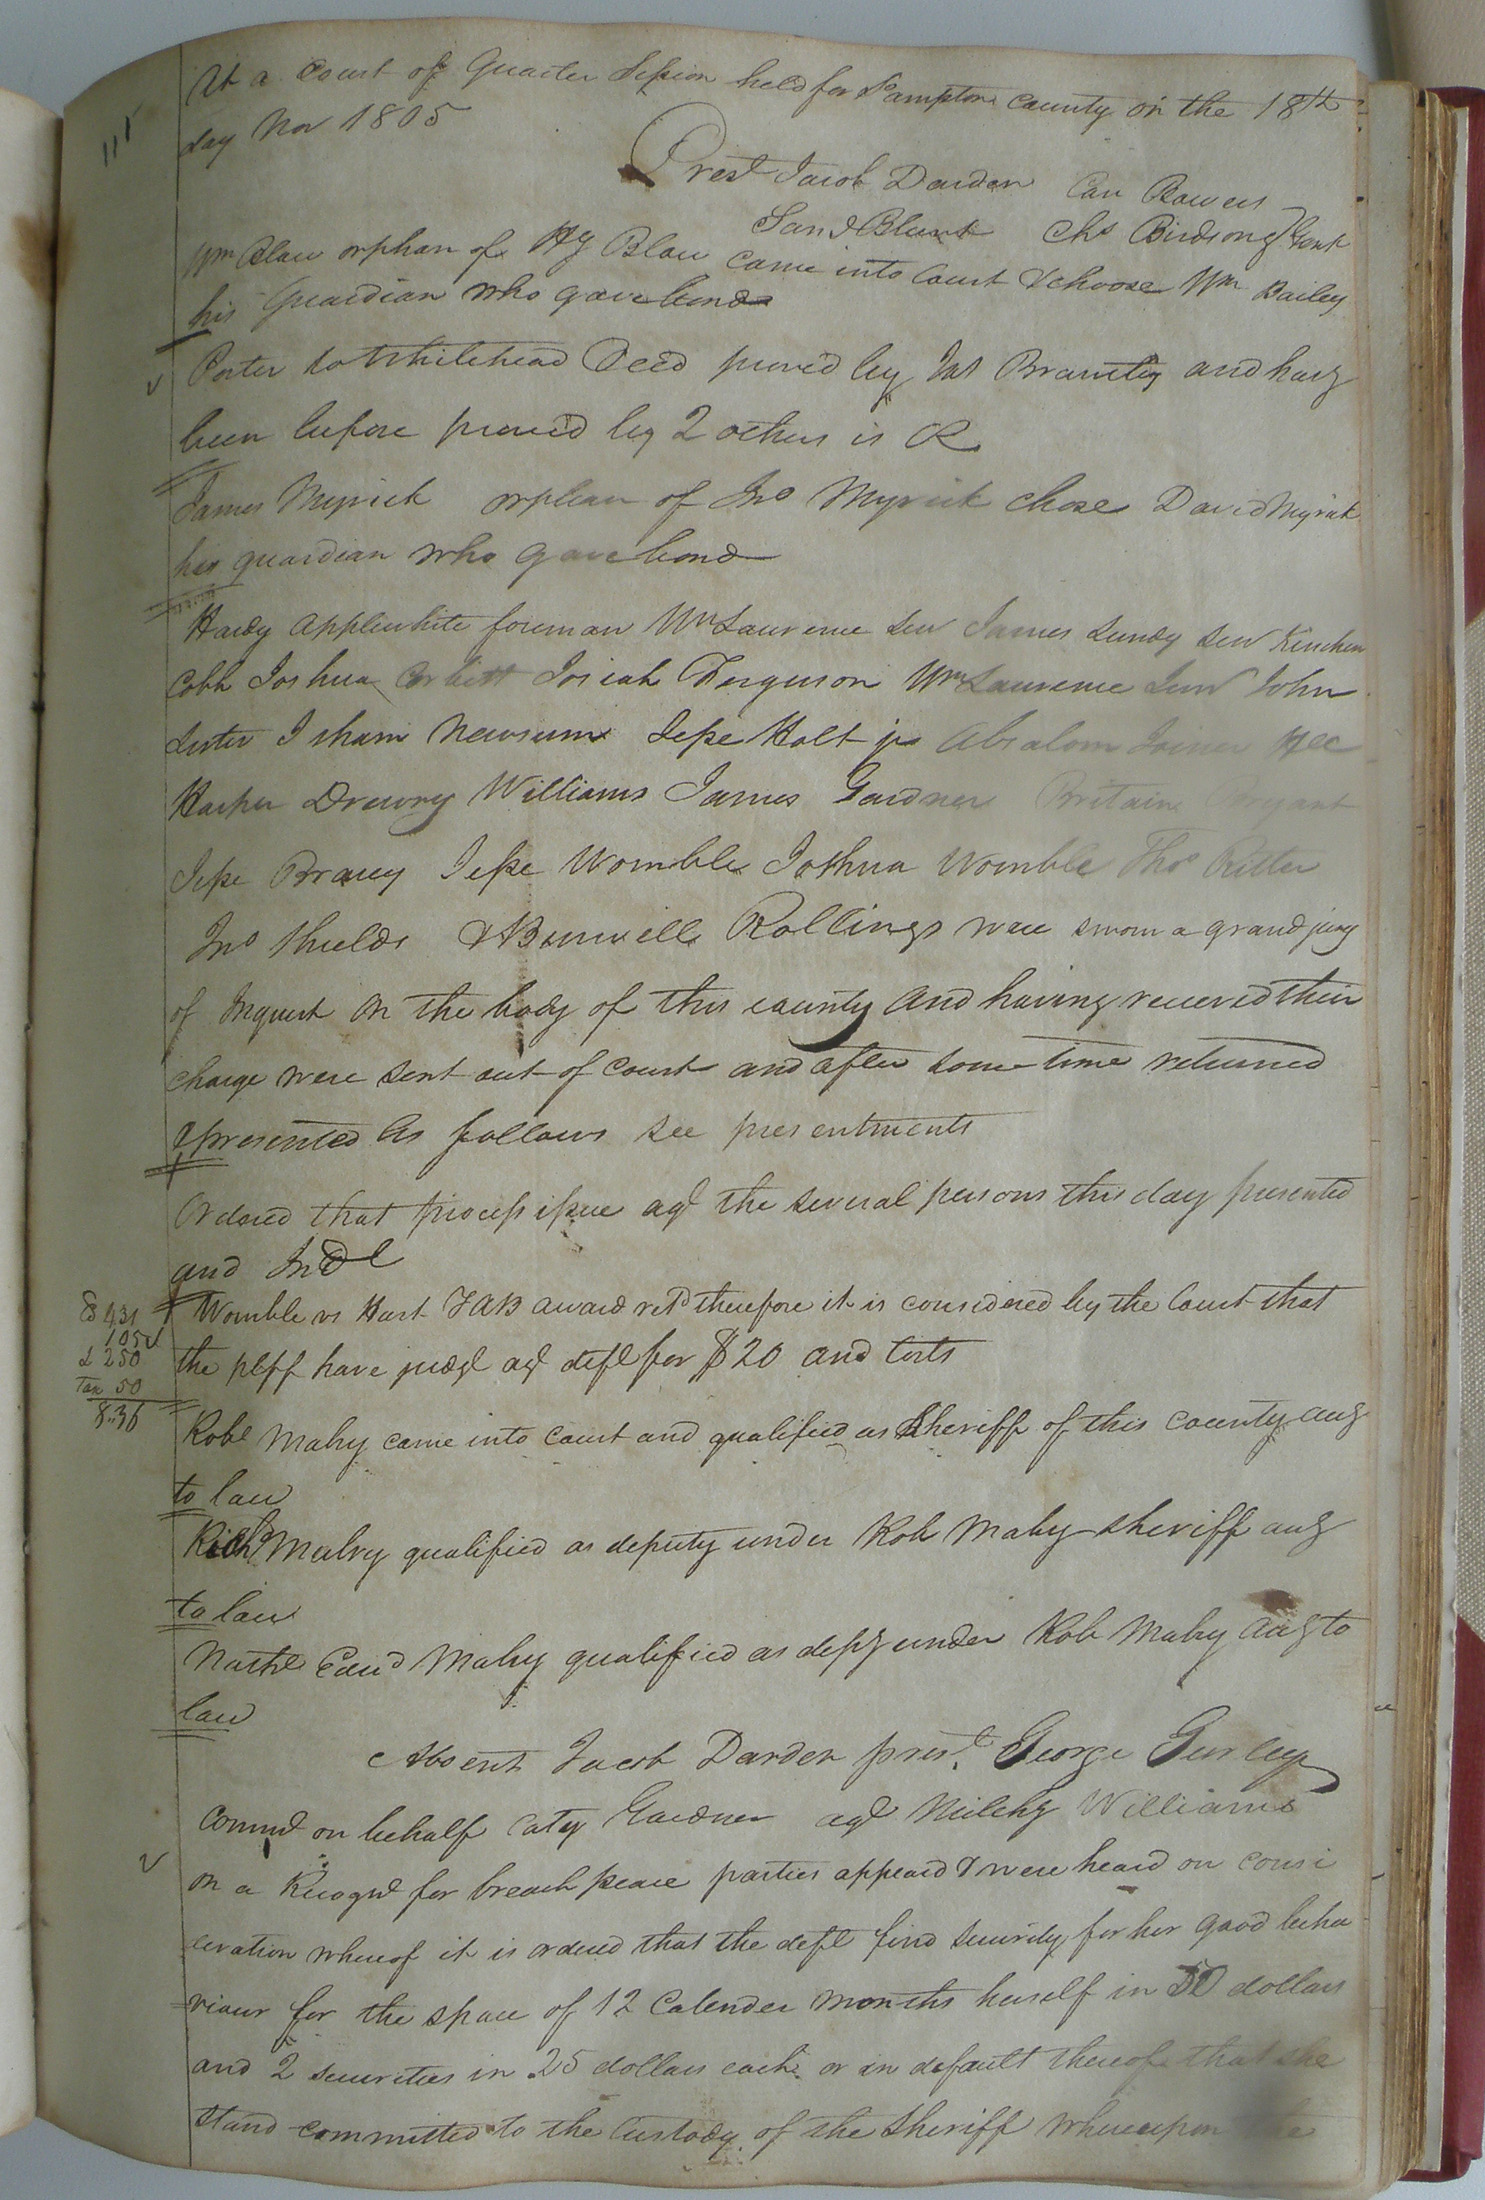 111
At a Court of Quarter Session held for S°ampton County on the 18th
day Nov 1805
Prest Jacob Darden Carr Bowers
Saml Blunt Chs Birdsong Gent
Wm Blow orphan of Hy Blow came into Court & choose Wm Bailey
his Guardian who gave bond
Porter to Whitehead Deed proved by Jas Brantley and havg
been before proved by 2 others is R
James Myrick orphan of Jno Myrick chose David Myrick
his guardian who gave bond
Hardy Applewhite foreman Wm Lawrence Sen James Lundy Sen Kinchen
Cobb Joshua Corbitt Josiah Ferguson Wm Lawrence Jun John
Luter Isham Newsum Jesse Holt jr Absalom Joiner
Harper Drewry Williams James Gardner Britain Bryant
Jesse Bracey Jesse Womble Joshua Womble Thos Ritter
Jno Shields & Burwell Rollings were sworn a grand jury
of Inquest on the body of this county and having received their
charge were sent out of Court and after some time returned
& presented as follows see presentments
Ordered that process issue agt the several persons this day presented
and Indt
Womble vs Hart TAB award retd therefore it is considered by the Court that
the pltff have judgt agt deft for $20 and Costs
431
105
250
Tax 50
8.36
Robt Mabry came into Court and qualified as Sheriff of this county accg
to law
Richd Mabry qualified as deputy under Rob Mabry sheriff accg
to law
Nathl Edwd Mabry qualified as depy under Rob Mabry accg to
law
Absent Jacob Darden prest George Gurley
Commt on behalf Caty Gardner agt Milchy Williams
on a Recognt for breach peace parties appeard & were heard on consi
deration whereof it is ordered that the deft find security for her good beha
=viour for the space of 12 Calender months herself in 50 dollars
and 2 securities in 25 dollars each or in default thereof that she
stand committed to the Custody of the Sheriff whereupon the